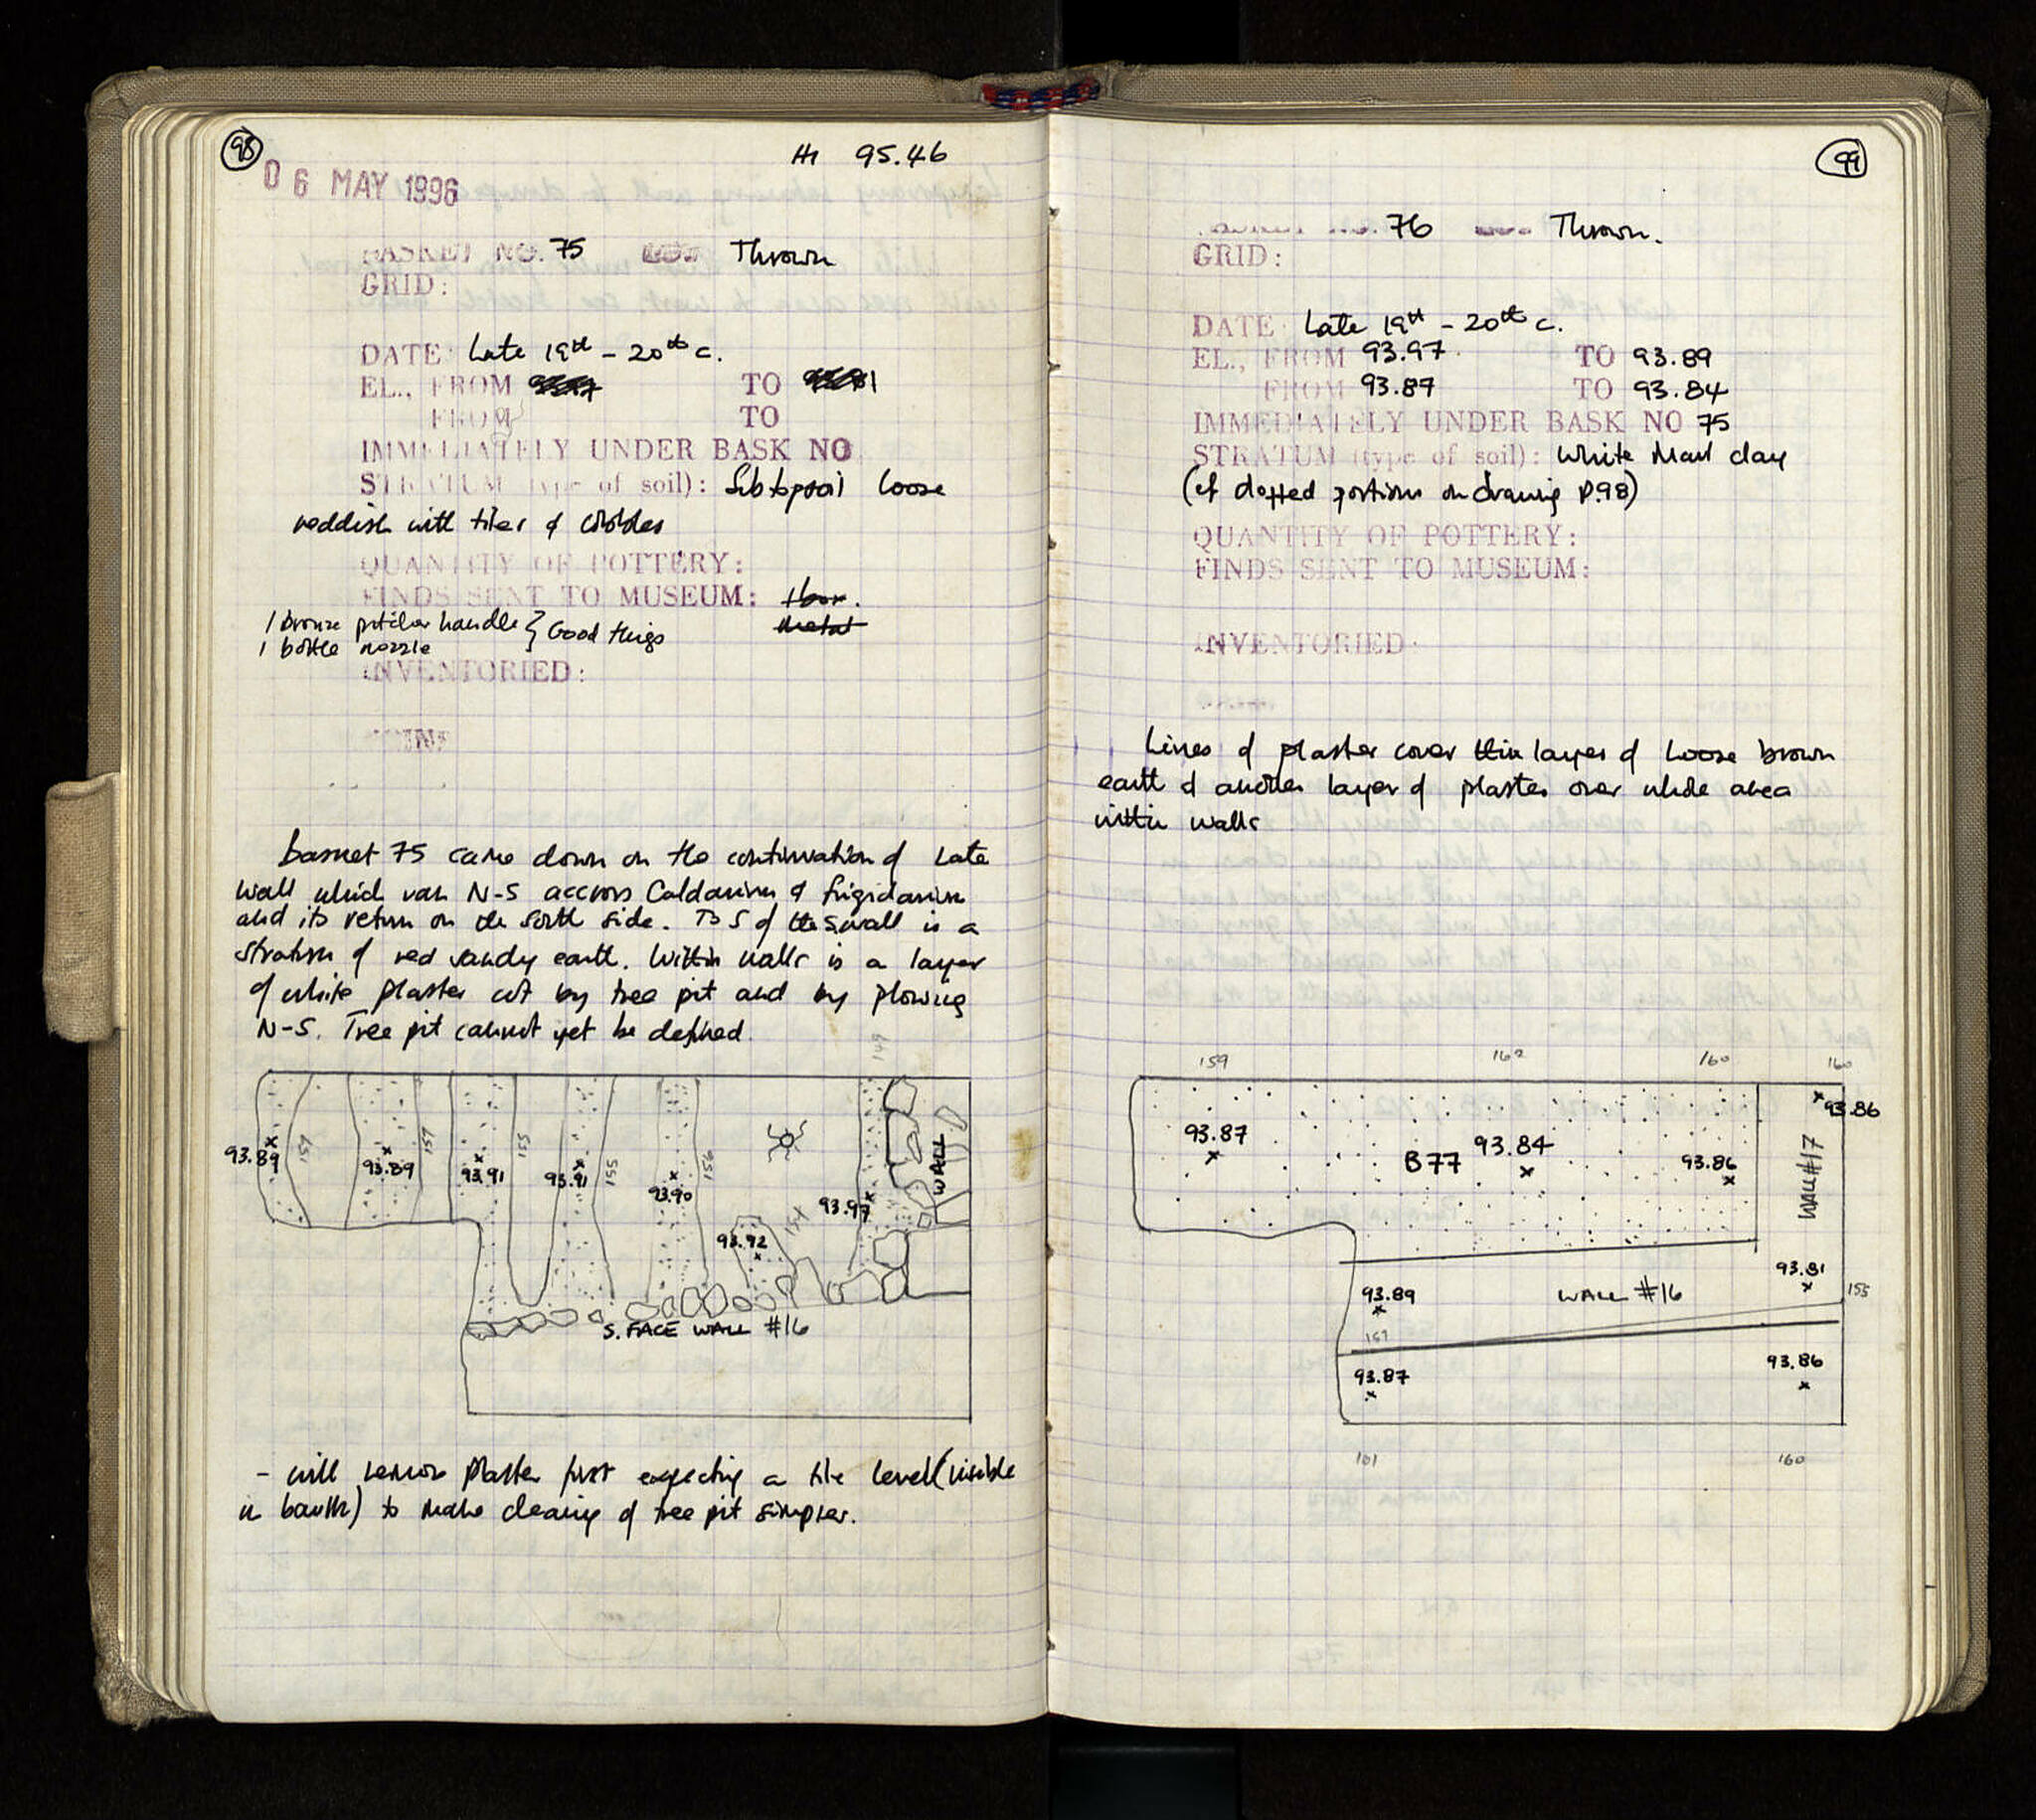 98
06 MAY 1996
HI 95.46
BASKET NO. 75 LOT Thrown
GRID:
DATE: Late 19th - 20th c.
EL., FROM TO
FROM TO
IMMEDIATELY UNDER BASK NO
STRATUM (type of soil): Subtopsoil loose
reddish with tiles & cobbles
QUANTITY OF POTTERY:
FINDS SENT TO MUSEUM: 1 box.
metal
1 bronze pitcher handle } Good things
1 bottle nozzle
INVENTORIED:
COINS
basket 75 came down on the continuation of Late
wall which ran N-S accross Caldarium & frigidarium
and its return on the south side. To S of the S wall is a
stratum of red sandy earth. Within walls is a layer
of white plaster cut by tree pit and by plowing
N-S. Tree pit cannot yet be defined.
149
93.89
157
93.89
157
93.91
155
93.91
155
93.90
156
93.92
154
93.97
WALL
S. FACE WALL #16
- will remove plaster first expecting a tile level (visible
in baulk) to make clearing of tree pit simpler.
99
76 Thrown.
GRID:
DATE: Late 19th - 20th c.
EL., FROM 93.97 TO 93.89
FROM 93.87 TO 93.84
IMMEDIATELY UNDER BASK NO 75
STRATUM (type of soil): White Marl clay
(cf dotted portions on drawing p.98)
QUANTITY OF POTTERY:
FINDS SENT TO MUSEUM:
INVENTORIED:
Lines of plaster cover thin layer of loose brown
earth & another layer of plaster over whole area
within walls
159 162 160 160
93.86
93.87
B77 93.84
93.86
WALL #17
93.81
93.89
WALL #16
155
157
93.87
93.86
161 160